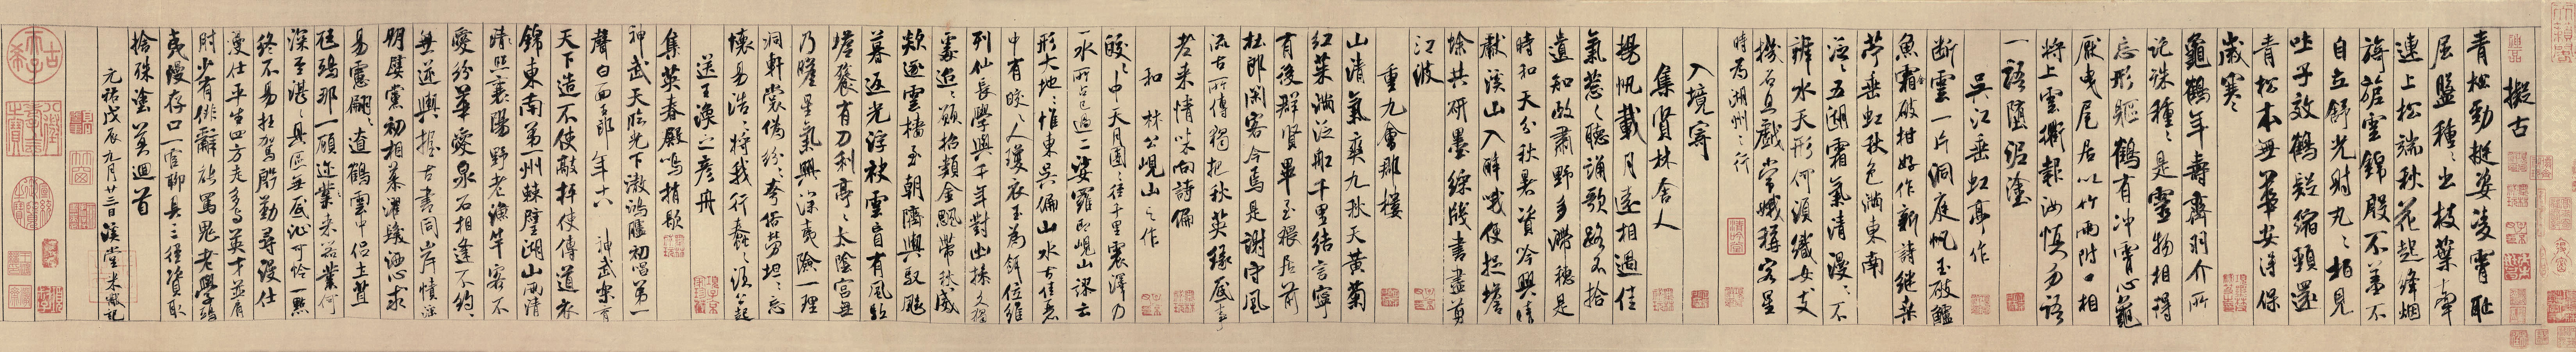 擬古
青松勁挺姿凌霄恥
屈盤種種出枝葉牽
連上松端秋花起絳烟
旖旎雲錦殷不羞不
自立舒光射丸丸柏見
吐子效鶴疑縮頸還
青松本無華安得保
歲寒
龜鶴年壽齊羽介所
託殊種種是靈物相得
忘形軀鶴有冲霄心龜
厭曳尾居以竹兩附口相
將上雲衢報汝慎勿語
一語墮泥塗
吳江垂虹亭作
斷雲一片洞庭帆玉破鱸
魚霜破柑好作新詩繼桑
苧垂虹秋色滿東南
泛泛五湖霜氣清漫漫不
辨水天形何須織女支
機石且戲常娥稱客星
時為湖州之行
入境寄
集賢林舍人
揚帆載月遠相過佳
氣蔥蔥聽誦歌路不拾
遺知政肅野多滯穗是
時和天分秋暑資吟興晴
獻溪山入醉哦便捉蟾
蜍共研墨綵牋書盡剪
江波
重九會郡樓
山清氣爽九秋天黃菊
紅茱滿泛船千里結言寧
有後群賢畢至猥居前
杜郎閑客今焉是謝守風
流古所傳獨把秋英緣底事
老來情味向詩偏
和林公峴山之作
皎皎中天月團團徑千里震澤乃
一水所占已過二娑羅即峴山謬云
形大地地惟東吳偏山水古佳麗
中有皎皎人瓊衣玉為餌位維
列仙長學與千年對幽操久獨
處迢迢願招類金颸帶秋威
欻逐雲檣至朝隮輿馭飆
暮返光浮袂雲盲有風驅
蟾餮有刀利亭亭太陰宮無
乃瞻星氣興深夷險一理
洞軒裳偽紛紛夸俗勞坦坦忘
懷易浩浩將我行蠢蠢須公起
送王渙之彥舟
集英春殿鳴捎歇
神武天臨光下澈鴻臚初唱第一
聲白面玉郎年十八神武樂育
天下造不使敲抨使傳道衣
錦東南第一州棘璧湖山兩清
照襄陽野老漁竿客不
愛紛華愛泉石相逢不約約
無逆輿握古書同岸幘淫
朋嬖黨初相慕濯髮灑心求
易慮翩翩遼鶴雲中侶土苴
尫鴟那一顧邇來器業何
深至湛湛具區無底沚可憐一點
終不易枉駕殷勤尋漫仕
漫仕平生四方走多與英才並肩
肘少有俳辭能罵鬼老學鴟
夷漫存口一官聊具三徑資取
捨殊塗莫迴首
元祐戊辰九月廿三日溪堂米黻記